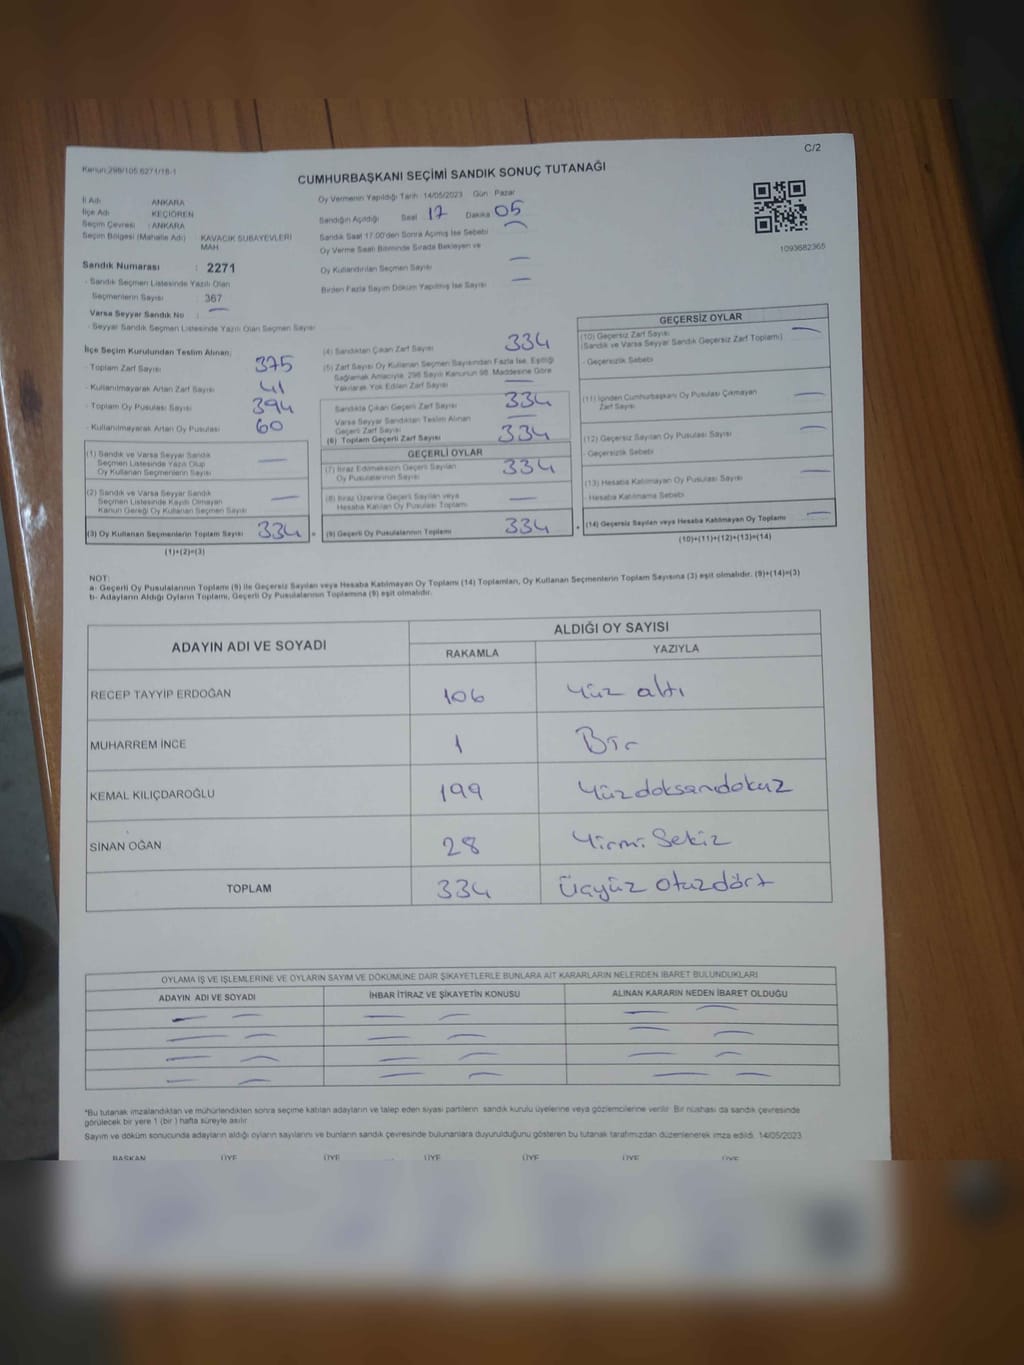 C/2
Kanun:298/105 6271/18-1
CUMHURBAŞKANI SEÇİMİ SANDIK SONUÇ TUTANAĞI
İl Adı ANKARA
İlçe Adı KEÇİÖREN
Seçim Çevresi : ANKARA
Seçim Bölgesi (Mahalle Adı) KAVACIK SUBAYEVLERİ
MAH.
Sandık Numarası : 2271
- Sandık Seçmen Listesinde Yazılı Olan
Seçmenlerin Sayısı : 367
Varsa Seyyar Sandık No : —
- Seyyar Sandık Seçmen Listesinde Yazılı Olan Seçmen Sayısı:
Oy Vermenin Yapıldığı Tarih 14/05/2023 Gün Pazar
Sandığın Açıldığı Saat 17 Dakika 05
Sandık Saat 17.00'den Sonra Açılmış İse Sebebi —
Oy Verme Saati Bitiminde Sırada Bekleyen ve
Oy Kullandırılan Seçmen Sayısı —
Birden Fazla Sayım Döküm Yapılmış İse Sayısı —
1093682365
İlçe Seçim Kurulundan Teslim Alınan;
- Toplam Zarf Sayısı 375
- Kullanılmayarak Artan Zarf Sayısı 41
- Toplam Oy Pusulası Sayısı 394
- Kullanılmayarak Artan Oy Pusulası 60
(1) Sandık ve Varsa Seyyar Sandık
Seçmen Listesinde Yazılı Olup
Oy Kullanan Seçmenlerin Sayısı —
(2) Sandık ve Varsa Seyyar Sandık
Seçmen Listesinde Kayıtlı Olmayan
Kanun Gereği Oy Kullanan Seçmen Sayısı —
(3) Oy Kullanan Seçmenlerin Toplam Sayısı 334 =
(1)+(2)=(3)
(4) Sandıktan Çıkan Zarf Sayısı 334
(5) Zarf Sayısı Oy Kullanan Seçmen Sayısından Fazla İse, Eşitliği
Sağlamak Amacıyla, 298 Sayılı Kanunun 98. Maddesine Göre
Yakılarak Yok Edilen Zarf Sayısı —
Sandıkta Çıkan Geçerli Zarf Sayısı 334
Varsa Seyyar Sandıktan Teslim Alınan
Geçerli Zarf Sayısı —
(6) Toplam Geçerli Zarf Sayısı 334
GEÇERLİ OYLAR
(7) İtiraz Edilmeksizin Geçerli Sayılan
Oy Pusulalarının Sayısı 334
(8) İtiraz Üzerine Geçerli Sayılan veya
Hesaba Katılan Oy Pusulası Toplamı —
(9) Geçerli Oy Pusulalarının Toplamı 334 +
GEÇERSİZ OYLAR
(10) Geçersiz Zarf Sayısı
(Sandık ve Varsa Seyyar Sandık Geçersiz Zarf Toplamı) —
- Geçersizlik Sebebi
(11) İçinden Cumhurbaşkanı Oy Pusulası Çıkmayan
Zarf Sayısı —
(12) Geçersiz Sayılan Oy Pusulası Sayısı —
- Geçersizlik Sebebi
(13) Hesaba Katılmayan Oy Pusulası Sayısı —
- Hesaba Katılmama Sebebi
(14) Geçersiz Sayılan veya Hesaba Katılmayan Oy Toplamı —
(10)+(11)+(12)+(13)=(14)
NOT:
a- Geçerli Oy Pusulalarının Toplamı (9) ile Geçersiz Sayılan veya Hesaba Katılmayan Oy Toplamı (14) Toplamları, Oy Kullanan Seçmenlerin Toplam Sayısına (3) eşit olmalıdır. (9)+(14)=(3)
b- Adayların Aldığı Oyların Toplamı, Geçerli Oy Pusulalarının Toplamına (9) eşit olmalıdır.
ADAYIN ADI VE SOYADI
ALDIĞI OY SAYISI
RAKAMLA YAZIYLA
RECEP TAYYİP ERDOĞAN 106 Yüz altı
MUHARREM İNCE 1 Bir
KEMAL KILIÇDAROĞLU 199 Yüzdoksandokuz
SİNAN OĞAN 28 Yirmi Sekiz
TOPLAM 334 Üçyüz otuzdört
OYLAMA İŞ VE İŞLEMLERİNE VE OYLARIN SAYIM VE DÖKÜMÜNE DAİR ŞİKAYETLERLE BUNLARA AİT KARARLARIN NELERDEN İBARET BULUNDUKLARI
ADAYIN ADI VE SOYADI İHBAR İTİRAZ VE ŞİKAYETİN KONUSU ALINAN KARARIN NEDEN İBARET OLDUĞU
— — — — — —
— — — — — —
— — — — — —
— — — — — —
*Bu tutanak imzalandıktan ve mühürlendikten sonra seçime katılan adayların ve talep eden siyasi partilerin sandık kurulu üyelerine veya gözlemcilerine verilir. Bir nüshası da sandık çevresinde
görülecek bir yere 1 (bir) hafta süreyle asılır.
Sayım ve döküm sonucunda adayların aldığı oyların sayılarını ve bunların sandık çevresinde bulunanlara duyurulduğunu gösteren bu tutanak tarafımızdan düzenlenerek imza edildi. 14/05/2023
BAŞKAN ÜYE ÜYE ÜYE ÜYE ÜYE ÜYE